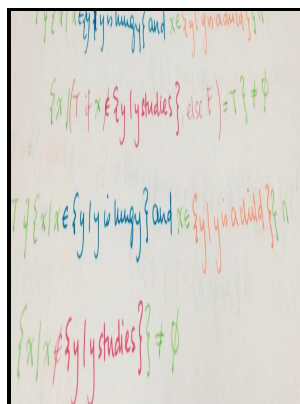 T if {x | x ∈ {y | y is hungry} and x ∈ {y | y is a child}} ∩
{x | (T if x ∉ {y | y studies}, else F) = T} ≠ ∅
T if {x | x ∈ {y | y is hungry} and x ∈ {y | y is a child}} ∩
{x | x ∉ {y | y studies}} ≠ ∅